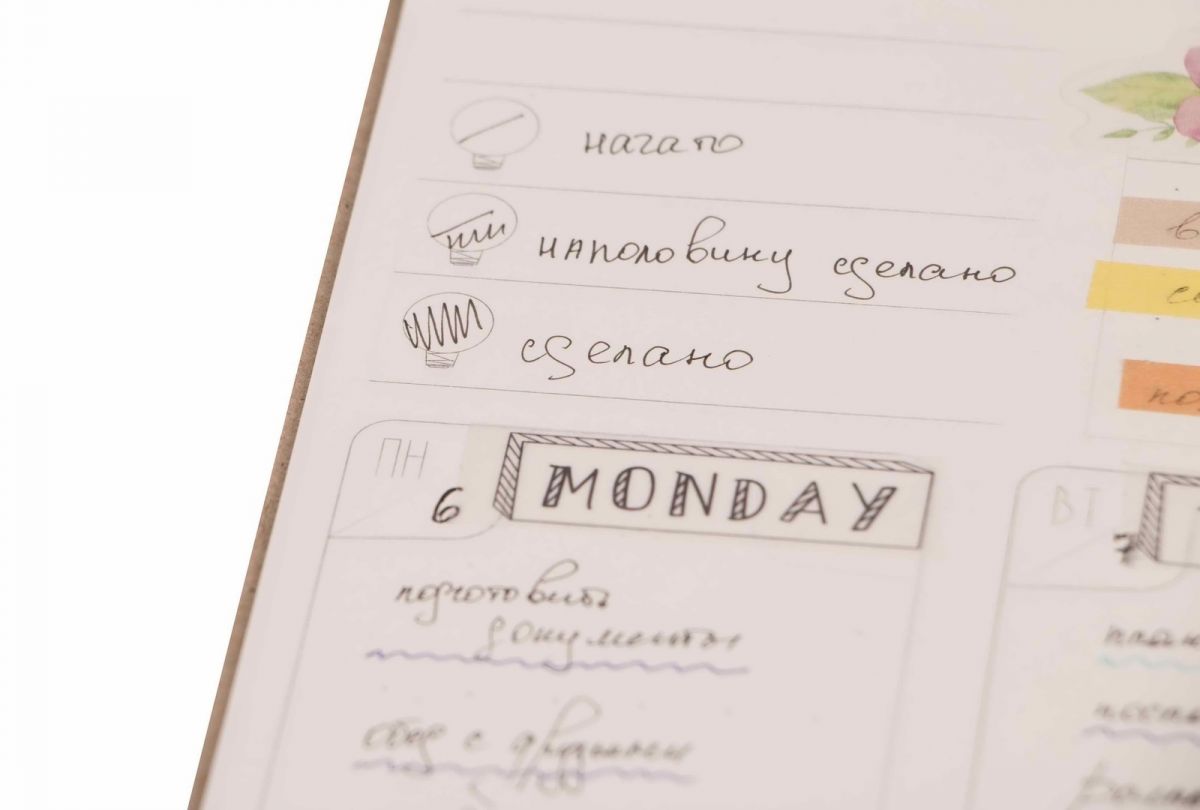 начато
наполовину сделано
сделано
ПН
6
MONDAY
ВТ
7
подготовить
документы
обед с друзьями